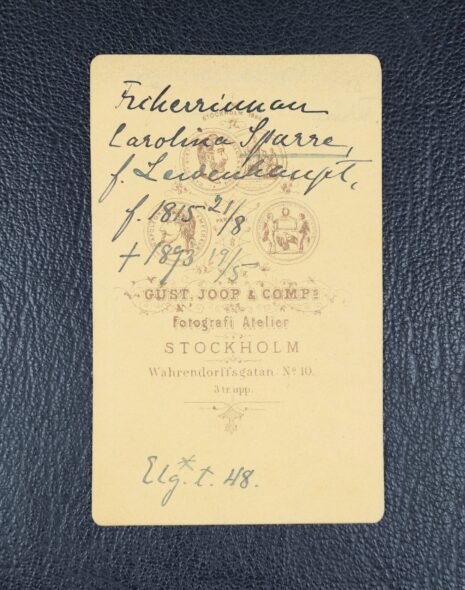 Friherrinnan
STOCKHOLM
Carolina Sparre,
f. Lewenhaupt,
f. 1815 21/8
+ 1893 19/5
GUST. JOOP & COMPs
Fotografi Atelier
STOCKHOLM
Wahrendorffsgatan No 10.
3 tr. upp.
Elg.* t. 48.